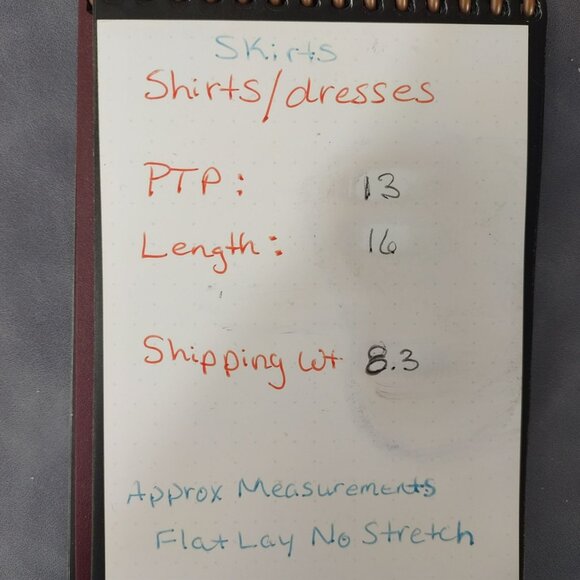 Skirts
Shirts/dresses
PTP: 13
Length: 16
Shipping Wt 8.3
Approx Measurements
Flat Lay No Stretch